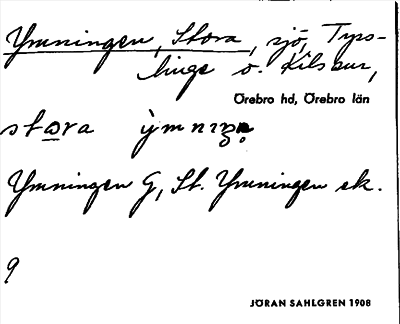 Ymningen, Stora, sjö, Tyss-
linge o. Kils snr,
Örebro hd, Örebro län
stora ỳmnıŋ
Ymningen G, St. Ymningen ek.
9
JÖRAN SAHLGREN 1908